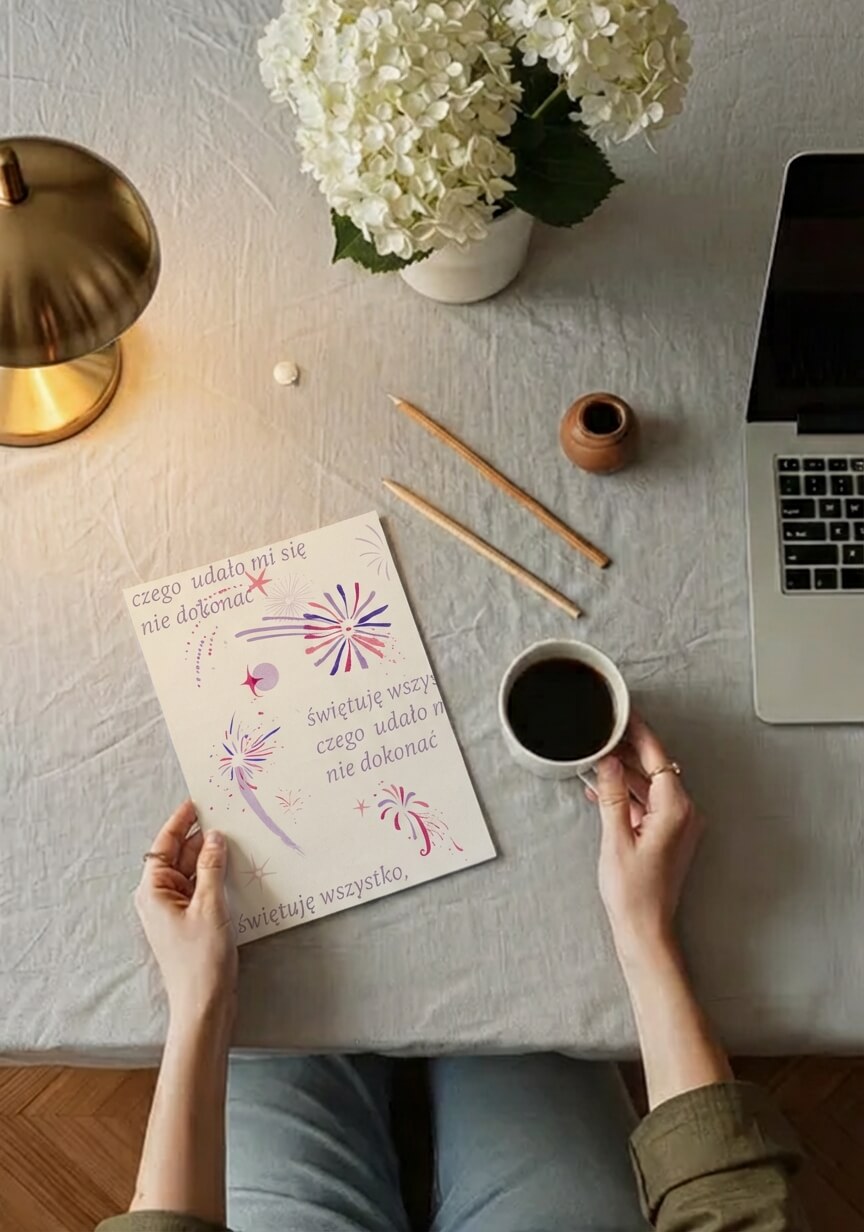 czego udało mi się
nie dokonać
świętuję wszys
czego udało m
nie dokonać
świętuję wszystko,